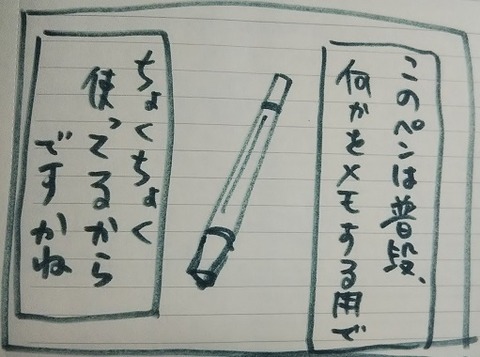 このペンは普段、
何かをメモする用で
ちょくちょく
使ってるから
ですかね